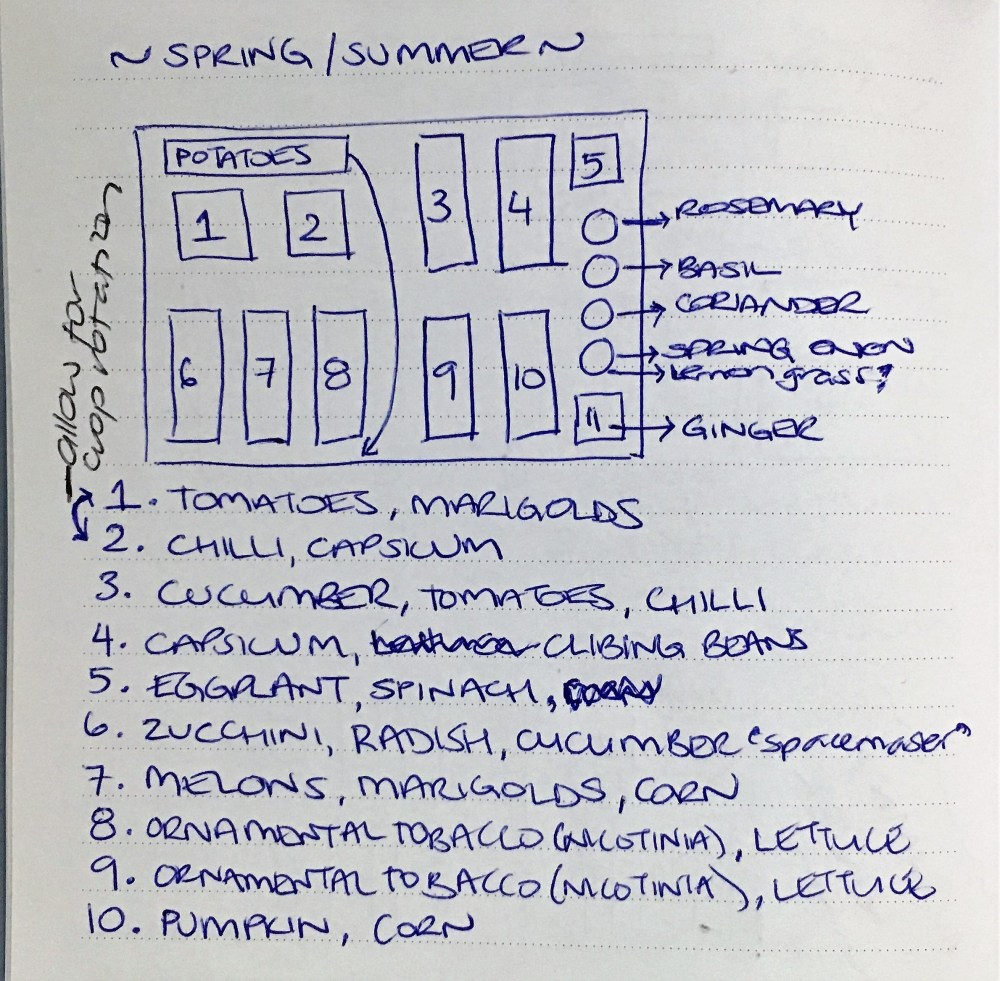 ~ SPRING / SUMMER ~
POTATOES
1
2
3
4
5
→ ROSEMARY
→ BASIL
→ CORIANDER
→ SPRING ONION
→ lemongrass?
6
7
8
9
10
11
→ GINGER
allow for
crop rotation
1. TOMATOES, MARIGOLDS
2. CHILLI, CAPSICUM
3. CUCUMBER, TOMATOES, CHILLI
4. CAPSICUM, CLIBING BEANS
5. EGGPLANT, SPINACH,
6. ZUCCHINI, RADISH, CUCUMBER "spacemaser"
7. MELONS, MARIGOLDS, CORN
8. ORNAMENTAL TOBACCO (NICOTINIA), LETTUCE
9. ORNAMENTAL TOBACCO (NICOTINIA), LETTUCE
10. PUMPKIN, CORN